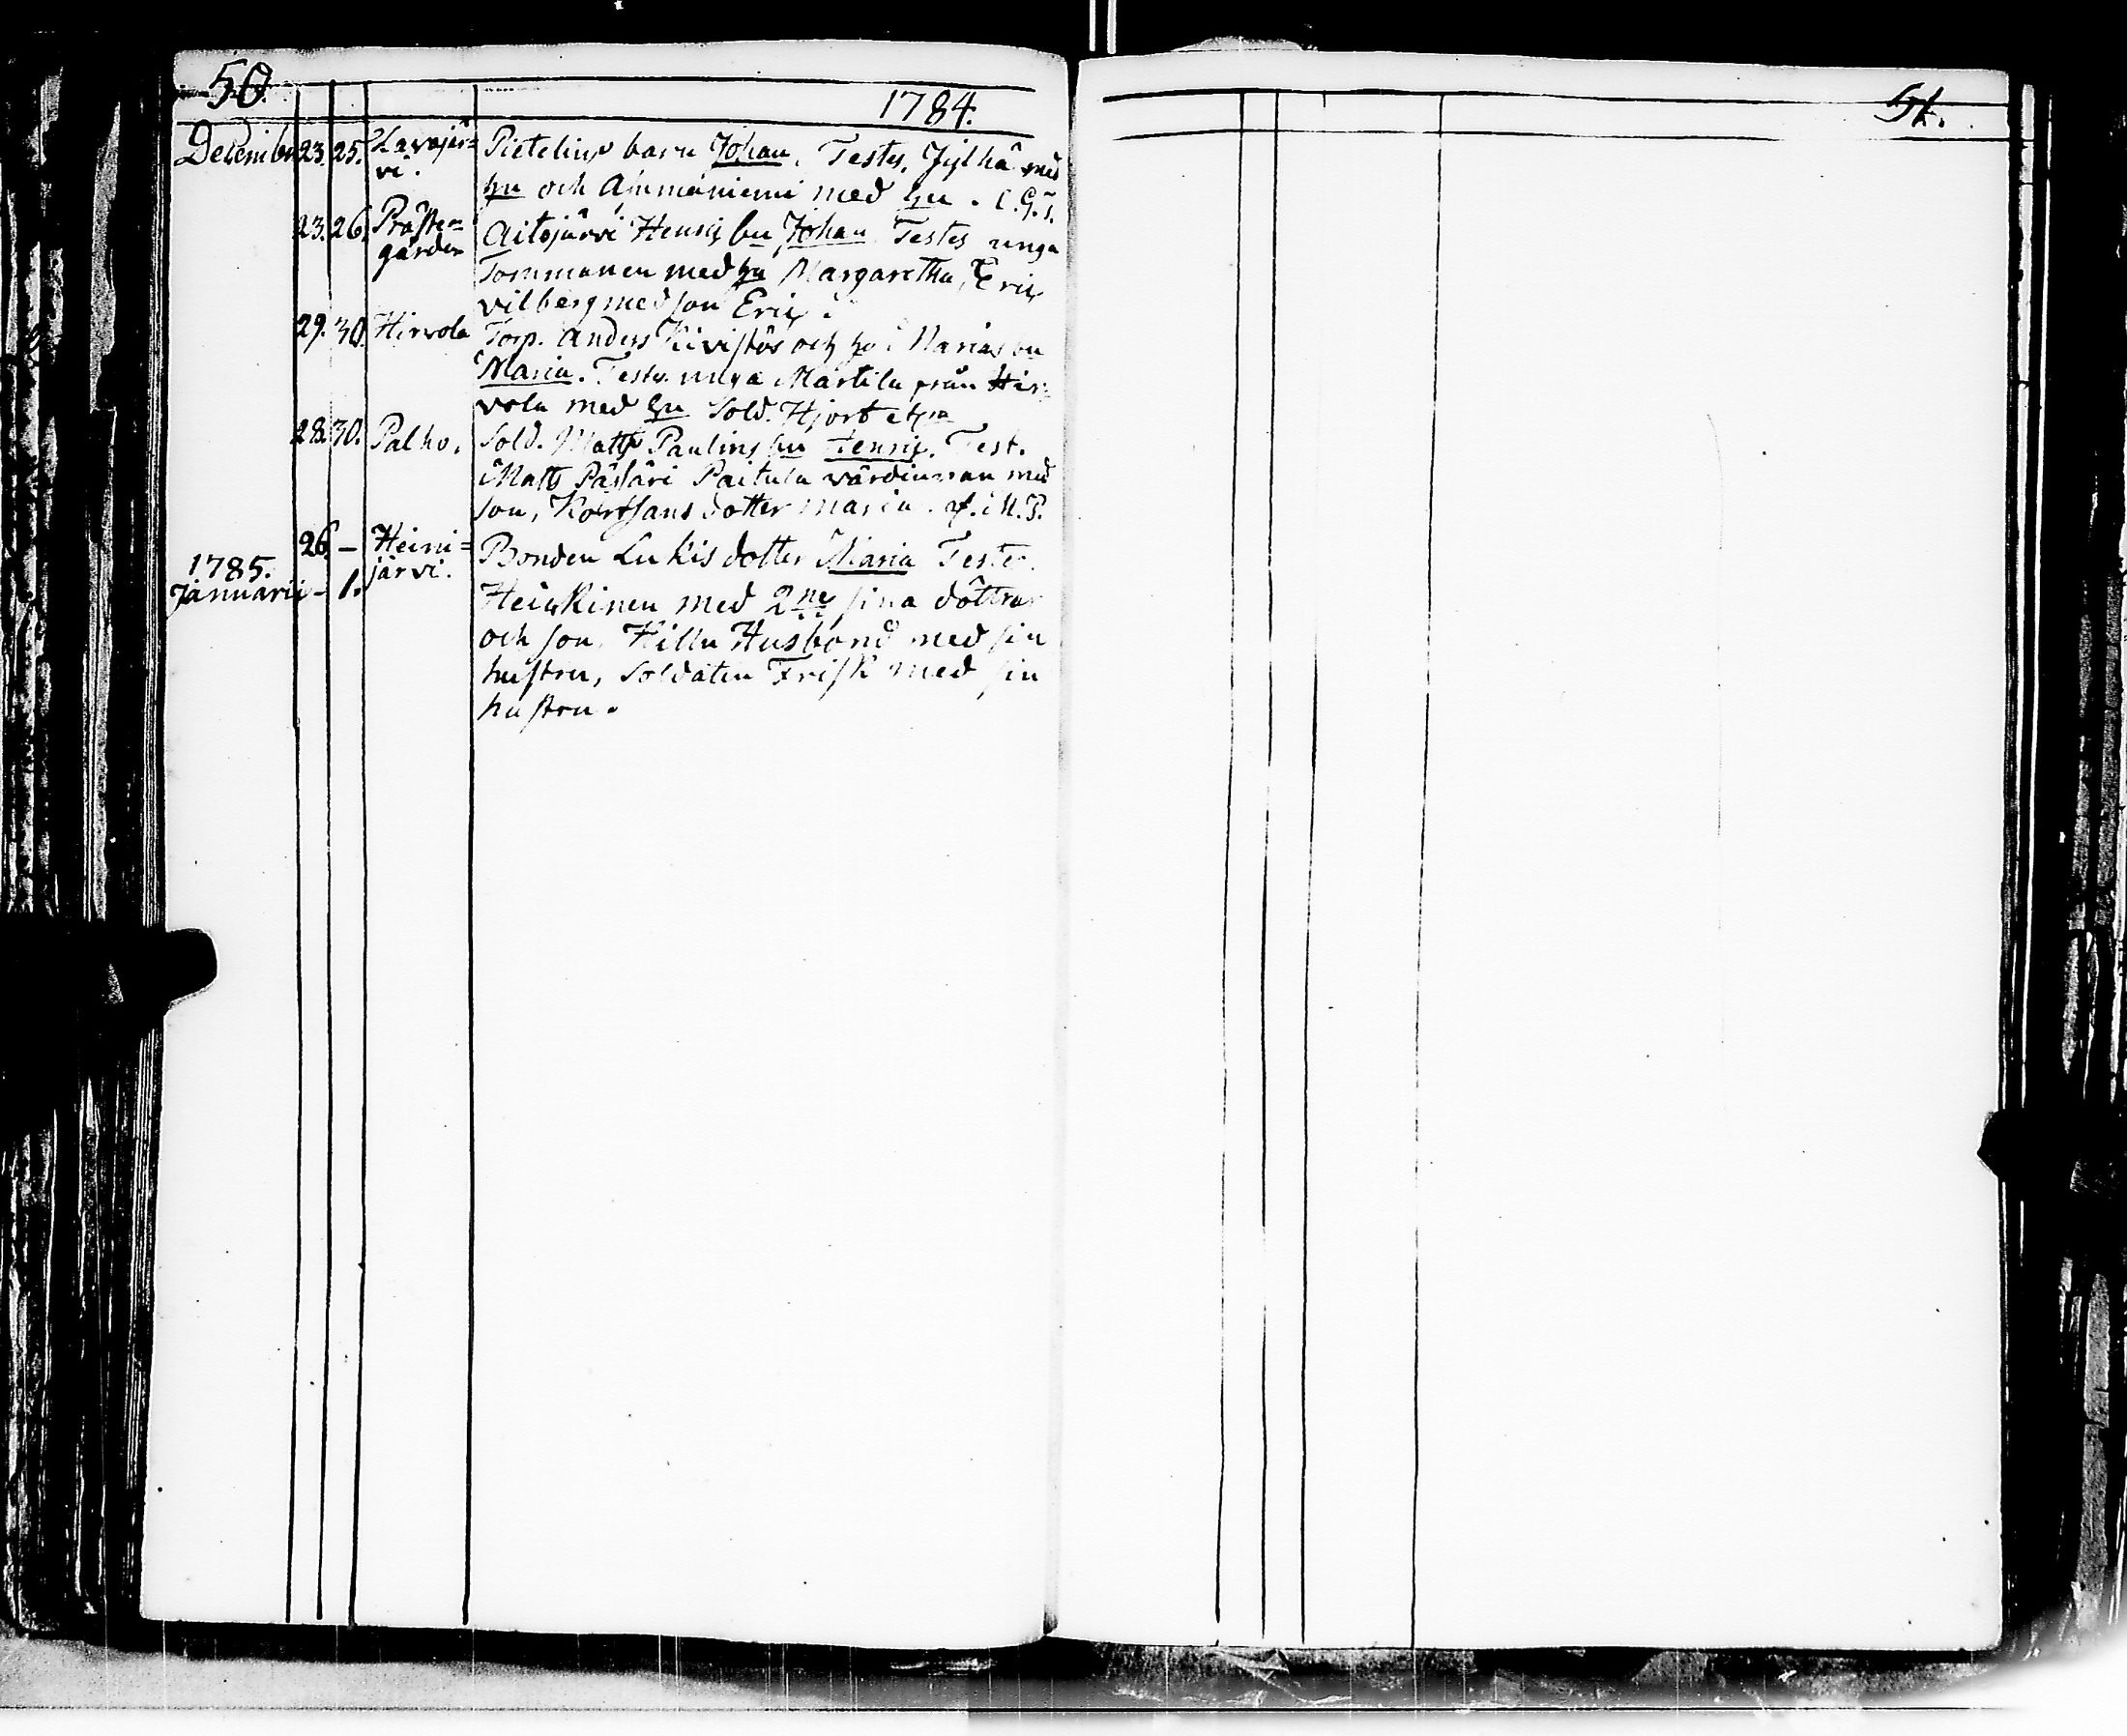 50.
1784.
Decembr 23. 25. Lavajär=
vi.
Pietelius barn Johan. Testes. Jylhä med
hu och Ammäniemi med hu. C.G.T.
23. 26. Präste=
gården
Aitojärvi Henrix bn Johan Testes unga
Tommanen med hu Margaretha, Eric
Vilberg med son Eric.
29. 30. Hirvola Torp. Anders Kivistös och hu Marias bn
Maria. Testes unga Martila från Hir=
vola med hu Sold. Hjort et
28. 30. Palho. Sold. Matts Paulins bn Henric. Test.
Matts Pässäri Paitula värdinnan med
son, dotter Maria. M.P.
26. – Heini=
järvi.
1785.
Januarii – 1.
Bonden Lukis dotter Maria Testes
Heiskinen med 2ne sina döttrar
och son, Hillu Husbond med sin
hustru, Soldaten Frisk med sin
hustru.
51.